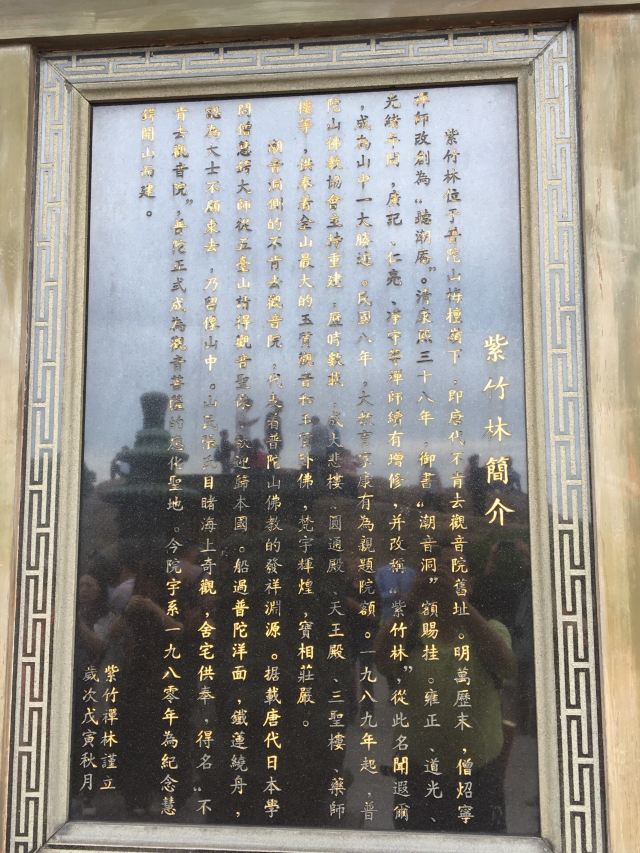 紫竹林簡介
紫竹林位于普陀山梅檀嶺下，即唐代不肯去觀音院舊址。明萬歷末，僧炤寧
禪師改創為“聽潮庵”。清康熙三十八年，御書“潮音洞”額賜挂。雍正、道光、
光緒年間，康記、仁亮、凈守等禪師續有增修，并改稱“紫竹林”，從此名聞遐爾
，成為山中一大勝迹。民國八年，大教育家康有為親題院額。一九八九年起，普
陀山佛教協會主持重建，歷時數載，成大悲樓、圓通殿、天王殿、三聖樓、藥師
樓等，供奉着全山最大的玉雕觀音和玉質卧佛，梵宇輝煌，寶相莊嚴。
潮音洞側的不肯去觀音院，代表着普陀山佛教的發祥淵源。据載唐代日本學
問僧慧鍔大師從五臺山請得觀音聖像，欲迎歸本國。船過普陀洋面，鐵蓮繞舟，
認為大士不願東去，乃留像山中。山民張氏目睹海上奇觀，舍宅供奉，得名“不
肯去觀音院”，普陀正式成為觀音菩薩的應化聖地。今院宇系一九八零年為紀念慧
鍔開山而建。
紫竹禪林謹立
歲次戊寅秋月